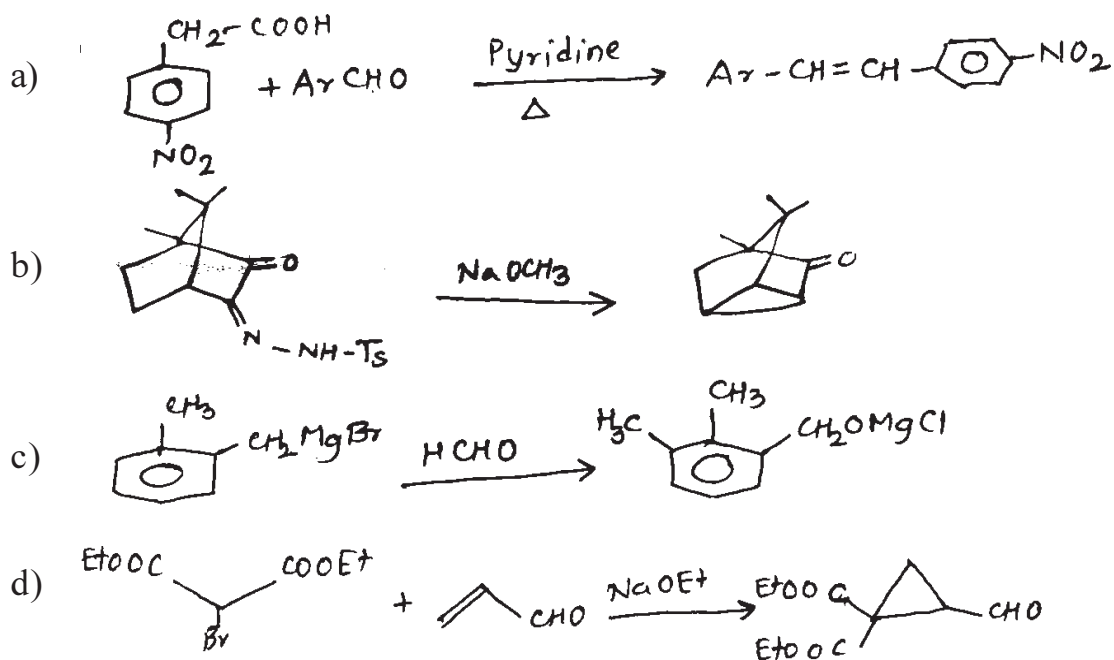 a) CH2-COOH
NO2
+ ArCHO
Pyridine
Δ
Ar-CH=CH-
-NO2
b) =O
N-NH-Ts
NaOCH3
=O
c) CH3
CH2MgBr
HCHO
H3C
CH3
CH2OMgCl
d) EtOOC
COOEt
Br
+
CHO
NaOEt
EtOOC
EtOOC
CHO